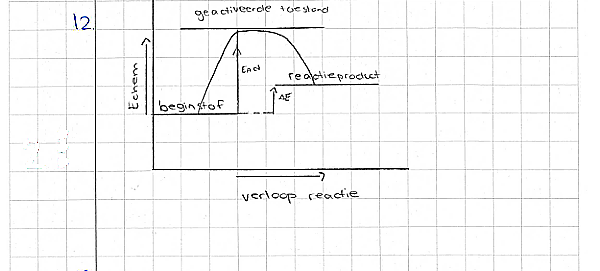 12
geactiveerde toestand
Echem
Eact
reactieproduct
beginstof
ΔE
verloop reactie